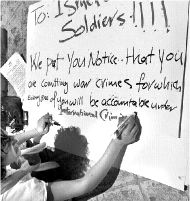 To: Israeli
Soldiers!!!!
We put you Notice. that you
are comiting war crimes for which
everyone of you will be accountable under
International Crimi